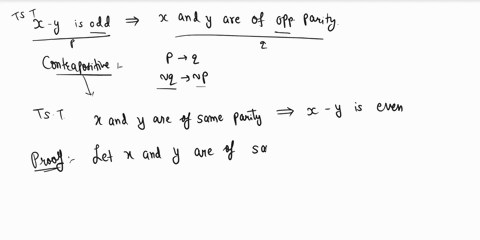 TS T x-y is odd ⇒ x and y are of opp. parity.
p q
Contrapositive :- p → q
~q → ~p
TS T x and y are of same parity ⇒ x - y is even
Proof :- Let x and y are of sa